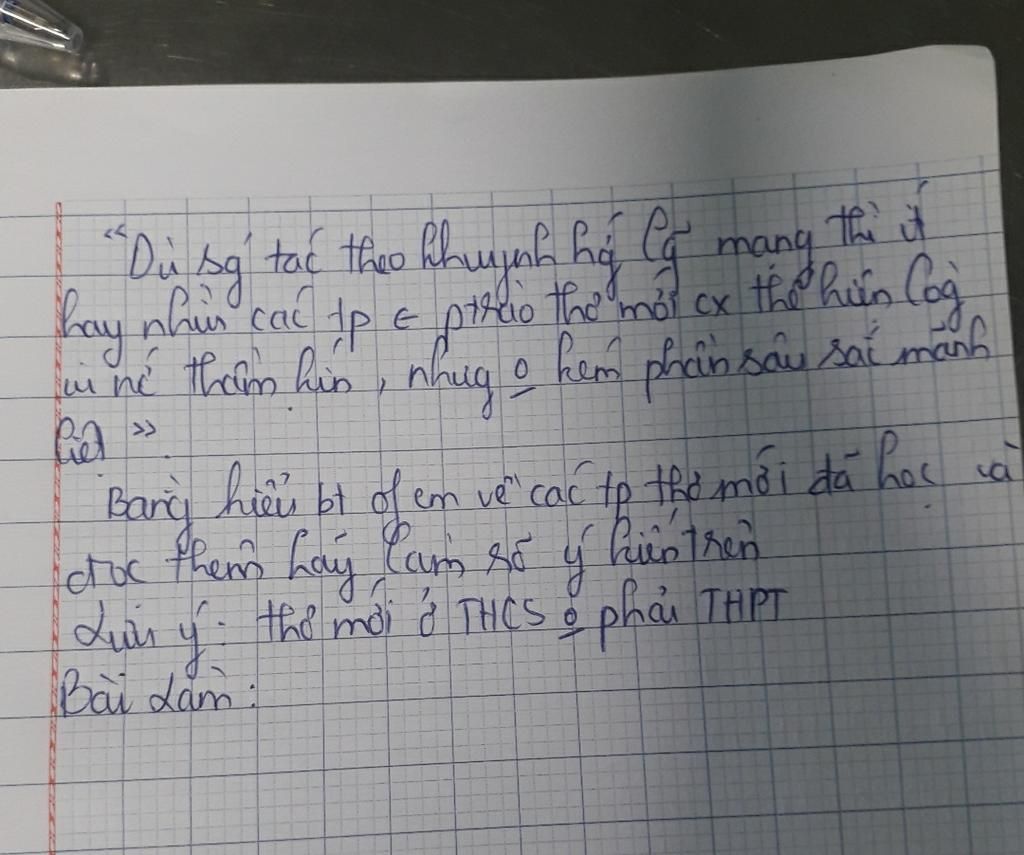 "Dù sg tác theo khuynh hg lg mạng thì ít
hay nhìu các tp ∈ ptrào thơ mới cx thể hiện lòg
iu nc thầm kín, nhưg o kém phần sâu sắc mãnh
liệt"
Bằng hiểu bt of em về các tp thơ mới đã học và
đọc thêm hãy làm rõ ý kiến trên
Lưu ý: thơ mới ở THCS o phải THPT
Bài làm: